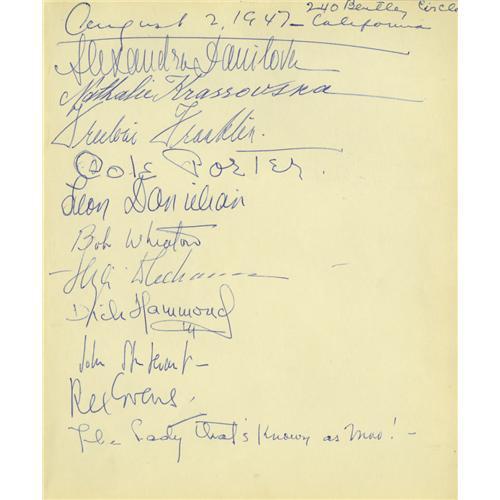 240 Bentley Circle
August 2, 1947 - California
Alexandra Danilova
Nathalie Krassovska
Frederic Franklin.
Cole Porter.
Leon Danielian
Bob Wheaton
Dick Hammond
John Stewart -
Rex Evans.
The Lady that's Known as Moo! -